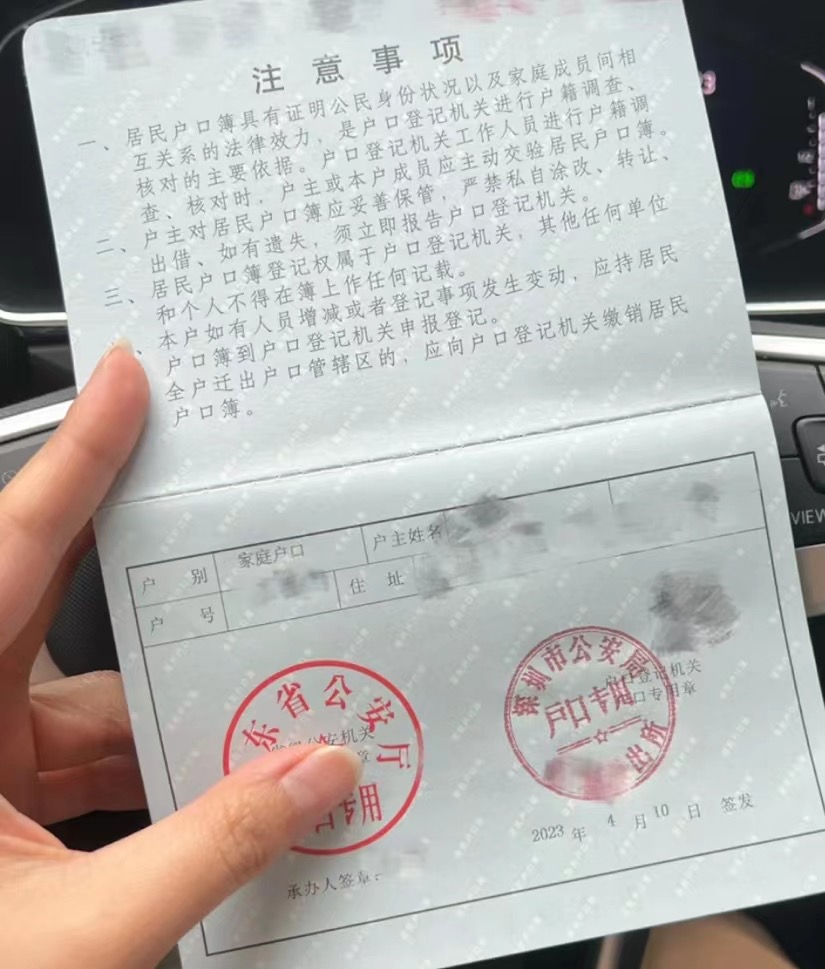 注意事项
一、居民户口簿具有证明公民身份状况以及家庭成员间相
互关系的法律效力，是户口登记机关进行户籍调查、
核对的主要依据。户口登记机关工作人员进行户籍调
查、核对时，户主或本户成员应主动交验居民户口簿。
二、户主对居民户口簿应妥善保管，严禁私自涂改、转让、
出借、如有遗失，须立即报告户口登记机关。
三、居民户口簿登记权属于户口登记机关，其他任何单位
和个人不得在簿上作任何记载。
、本户如有人员增减或者登记事项发生变动，应持居民
户口簿到户口登记机关申报登记。
全户迁出户口管辖区的，应向户口登记机关缴销居民
户口簿。
户别 家庭户口 户主姓名
户号 住址
东省公安厅
公安机关
章
口专用
州市公安局
户口专用
出所
户口登记机关
口专用章
2023 年 4 月 10 日 签发
承办人签章：
VIEW